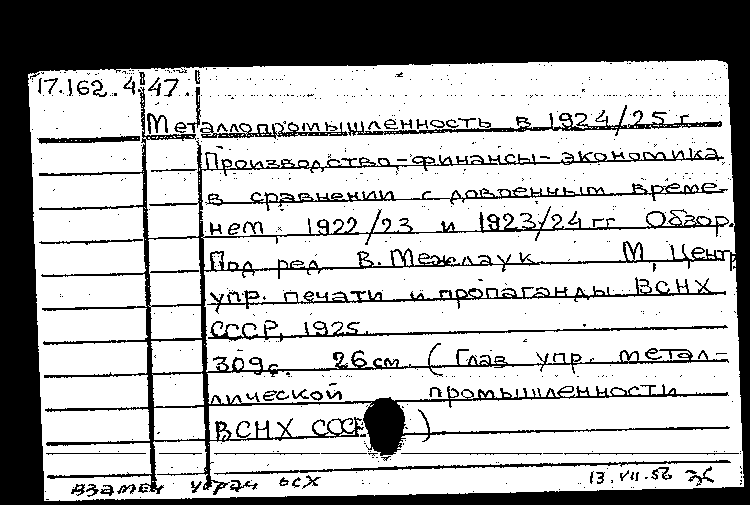 17.162.4 47.
Металлопромышленность в 1924/25 г.
Производство,-финансы-экономика
в сравнении с довоенным време-
нем, 1922/23 и 1923/24 гг. Обзор.
Под ред. В. Межлаук. М, Центр
упр. печати и пропаганды ВСНХ
СССР, 1925.
309с. 26 см. (Глав упр. метал-
лической промышленности
ВСНХ СССР)
взамен 13.VII.56